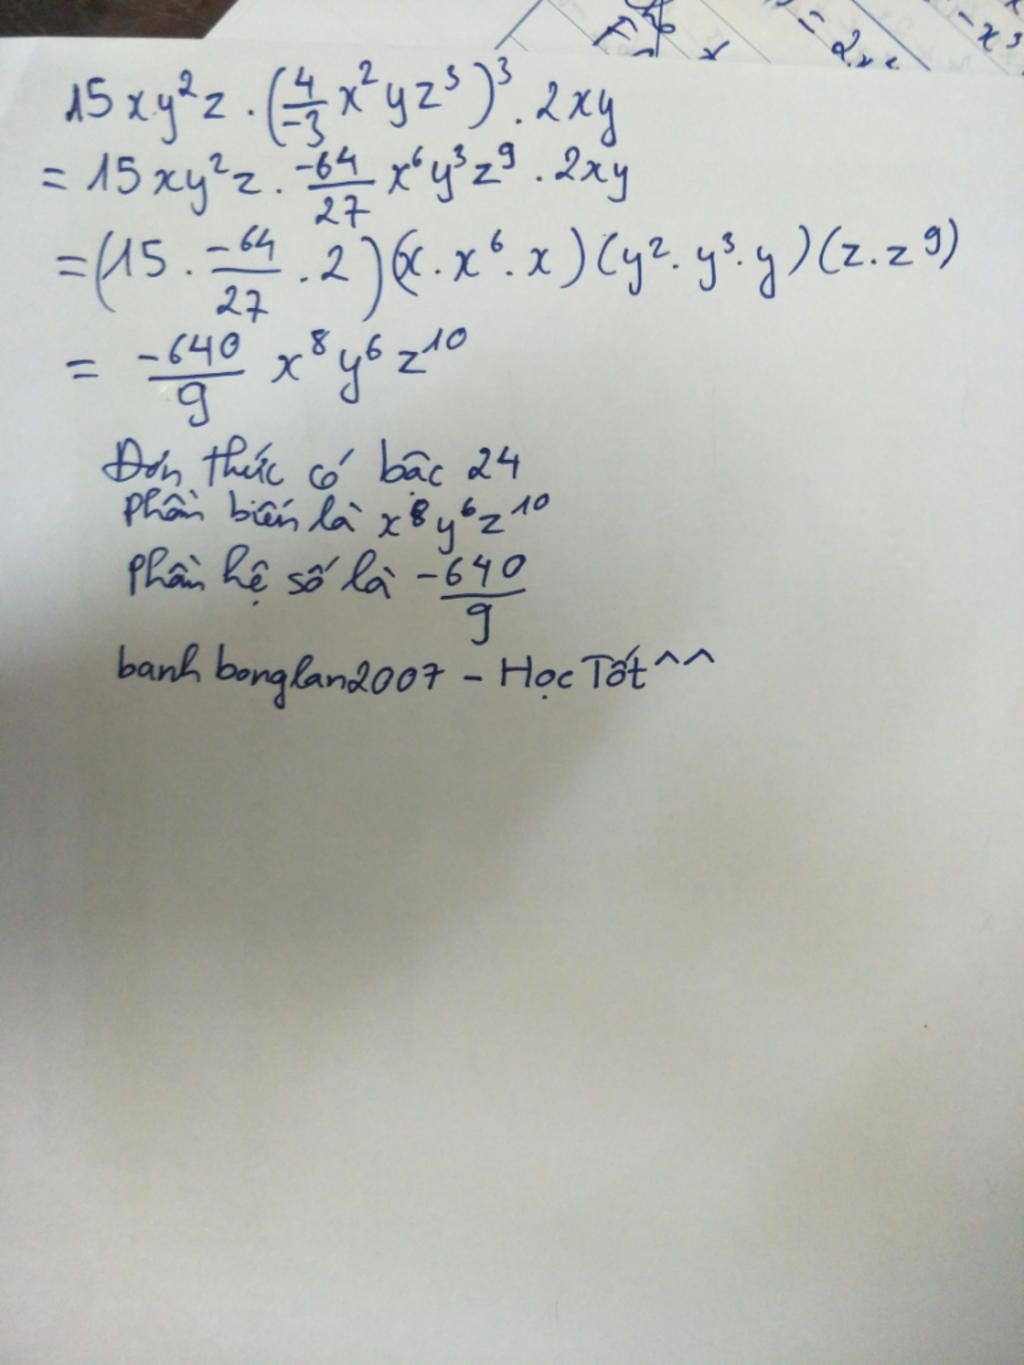 15xy²z . (4/-3 x²yz³)³ . 2xy
= 15xy²z . -64/27 x⁶y³z⁹ . 2xy
= (15 . -64/27 . 2)(x . x⁶ . x)(y² . y³ . y)(z . z⁹)
= -640/9 x⁸y⁶z¹⁰
Đơn thức có bậc 24
Phần biến là x⁸y⁶z¹⁰
Phần hệ số là -640/9
banh bonglan2007 - Học Tốt^^